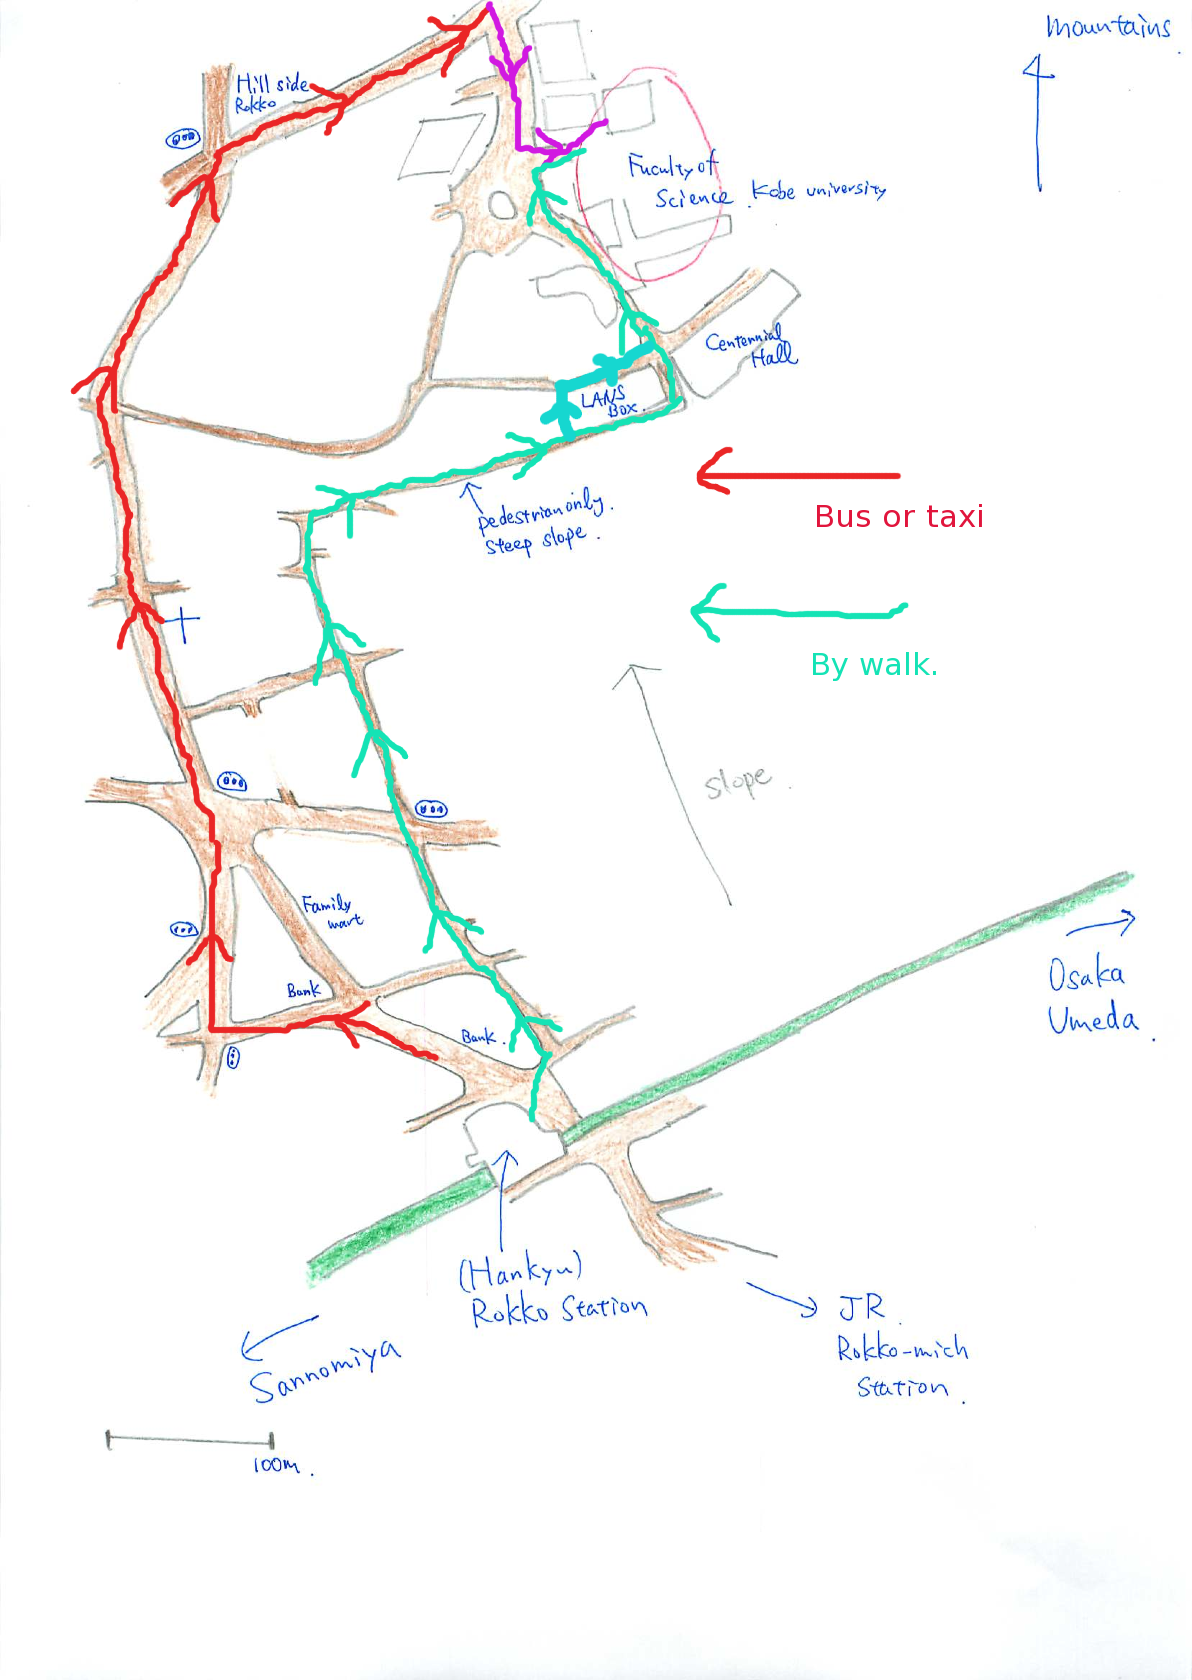 mountains
Hill side
Rokko
Fuculty of
Science Kobe university
Centennial
Hall
LANS
Box.
pedestrian only.
steep slope.
Bus or taxi
By walk.
slope.
Family
mart
Bank
Bank.
Osaka
Umeda.
(Hankyu)
Rokko Station
Sannomiya
JR
Rokko-mich
Station.
100m.